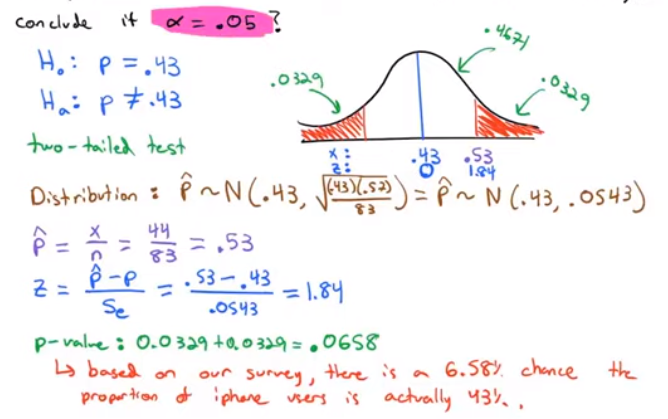 conclude if α = .05 ?
H₀: p = .43
Hₐ: p ≠ .43
two-tailed test
.0329
.4671
.0329
x: .43 .53
z: 0 1.84
Distribution: p̂ ~ N(.43, √((.43)(.57)/83)) = p̂ ~ N(.43, .0543)
p̂ = x/n = 44/83 = .53
z = (p̂ - p)/Se = (.53 - .43)/.0543 = 1.84
p-value: 0.0329 + 0.0329 = .0658
↳ based on our survey, there is a 6.58% chance the
proportion of iphone users is actually 43%.